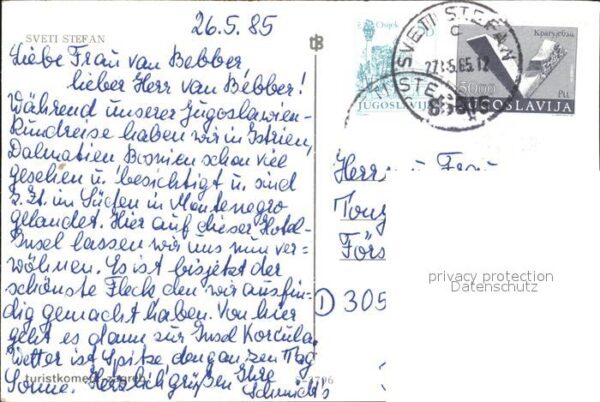 26.5.85
SVETI STEFAN
Liebe Frau van Bebber
lieber Herr van Bebber!
Während unserer Jugoslawien-
Rundreise haben wir in Istrien,
Dalmatien Bosnien schon viel
gesehen u. besichtigt u. sind
z.Zt. im Süden in Montenegro
gelandet. Hier auf dieser Hotel-
Insel lassen wir uns nun ver-
wöhnen. Es ist bisjetzt der
schönste Fleck den wir ausfin-
dig gemacht haben. Von hier
geht es dann zur Insel Korcula.
Wetter ist Spitze den ganzen Tag
Sonne. Herzlich grüßen Ihre
Schmidt's
turistkomerc zagreb
Osijek
JUGOSLAVIJA
SVETI STEFAN
Крагујевац
5000
JUGOSLAVIJA
Herrn u. Frau
Förs
1 305
privacy protection
Datenschutz